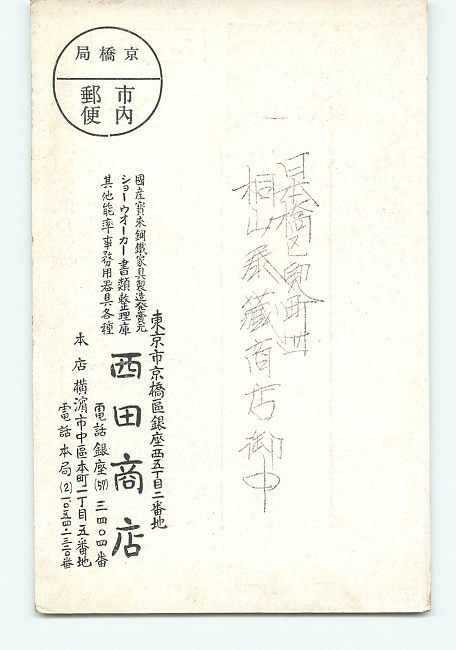 日本橋区室町四
桐山泰蔵商店御中
京橋局
市内
郵便
國産寳来鋼鐵家具製造発賣元
ショーウオーカー書類整理庫
其他能率事務用器具各種
東京市京橋區銀座西五丁目二番地
西田商店
電話銀座(57)三四〇四番
本店 横濱市中區本町二丁目五番地
電話本局(2)一〇五四・一三一〇番